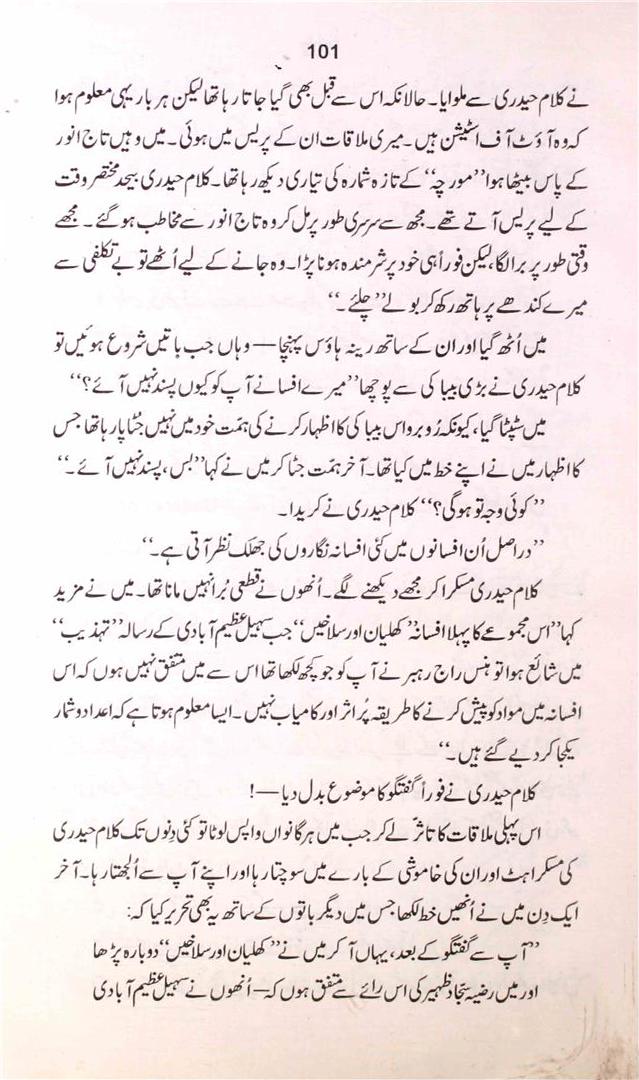 101
نے کلام حیدری سے ملوایا۔ حالانکہ اس سے قبل بھی گیا جاتا رہا تھا لیکن ہر بار یہی معلوم ہوا
کہ وہ آؤٹ آف اسٹیشن ہیں۔ میری ملاقات ان کے پریس میں ہوئی۔ میں وہیں تاج انور
کے پاس بیٹھا ہوا ”مورچہ“ کے تازہ شمارہ کی تیاری دیکھ رہا تھا۔ کلام حیدری بیحد مختصر وقت
کے لیے پریس آتے تھے۔ مجھ سے سرسری طور پر مل کر وہ تاج انور سے مخاطب ہو گئے۔ مجھے
وقتی طور پر برا لگا، لیکن فوراً ہی خود پر شرمندہ ہونا پڑا۔ وہ جانے کے لیے اُٹھے تو بے تکلفی سے
میرے کندھے پر ہاتھ رکھ کر بولے ”چلئے۔“
میں اُٹھ گیا اور ان کے ساتھ رینہ ہاؤس پہنچا— وہاں جب باتیں شروع ہوئیں تو
کلام حیدری نے بڑی بیباکی سے پوچھا ”میرے افسانے آپ کو کیوں پسند نہیں آئے؟“
میں سٹپٹا گیا، کیونکہ رُوبرو اس بیباکی کا اظہار کرنے کی ہمّت خود میں نہیں جٹا پا رہا تھا جس
کا اظہار میں نے اپنے خط میں کیا تھا۔ آخر ہمّت جٹا کر میں نے کہا ”بس، پسند نہیں آئے۔“
”کوئی وجہ تو ہوگی؟“ کلام حیدری نے کریدا۔
”دراصل اُن افسانوں میں کئی افسانہ نگاروں کی جھلک نظر آتی ہے۔“
کلام حیدری مسکرا کر مجھے دیکھنے لگے۔ اُنھوں نے قطعی بُرا نہیں مانا تھا۔ میں نے مزید
کہا ”اس مجموعے کا پہلا افسانہ ’کھلیان اور سلاخیں“ جب سہیل عظیم آبادی کے رسالہ ”تہذیب“
میں شائع ہوا تو ہنس راج رہبر نے آپ کو جو کچھ لکھا تھا اس سے میں متفق نہیں ہوں کہ اس
افسانہ میں مواد کو پیش کرنے کا طریقہ پُر اثر اور کامیاب نہیں۔ ایسا معلوم ہوتا ہے کہ اعداد و شمار
یکجا کر دیے گئے ہیں۔“
کلام حیدری نے فوراً گفتگو کا موضوع بدل دیا—!
اس پہلی ملاقات کا تاثر لے کر جب میں ہرگانواں واپس لوٹا تو کئی دِنوں تک کلام حیدری
کی مسکراہٹ اور ان کی خاموشی کے بارے میں سوچتا رہا اور اپنے آپ سے اُلجھتا رہا۔ آخر
ایک دِن میں نے اُنھیں خط لکھا جس میں دیگر باتوں کے ساتھ یہ بھی تحریر کیا کہ:
”آپ سے گفتگو کے بعد، یہاں آ کر میں نے ”کھلیان اور سلاخیں“ دوبارہ پڑھا
اور میں رضیہ سجّاد ظہیر کی اس رائے سے متفق ہوں کہ— اُنھوں نے سہیل عظیم آبادی